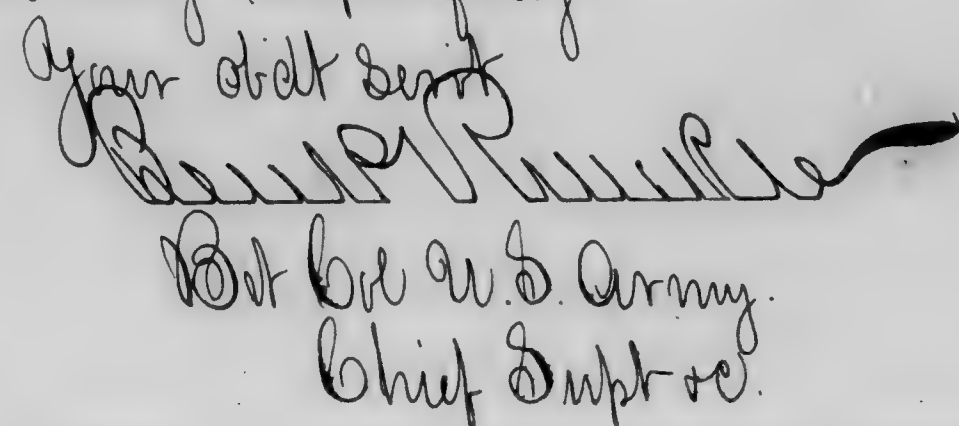 Your obdt servt
Ben P Runkle
Bvt Col U.S. Army.
Chief Supt &c.